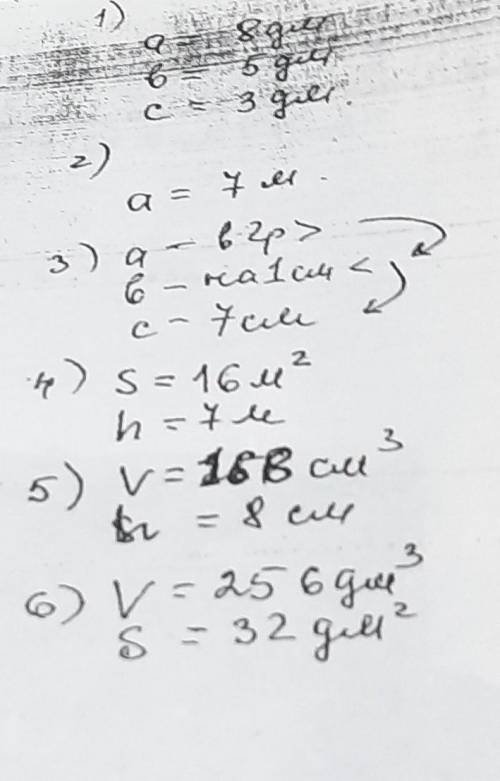 1)
a = 8 дм
в = 5 дм
c = 3 дм.
2)
a = 7 м.
3) a - в 2р >
в - на 1 см <
c - 7 см
4) S = 16 м²
h = 7 м
5) V = 168 см³
h = 8 см
6) V = 256 дм³
S = 32 дм²